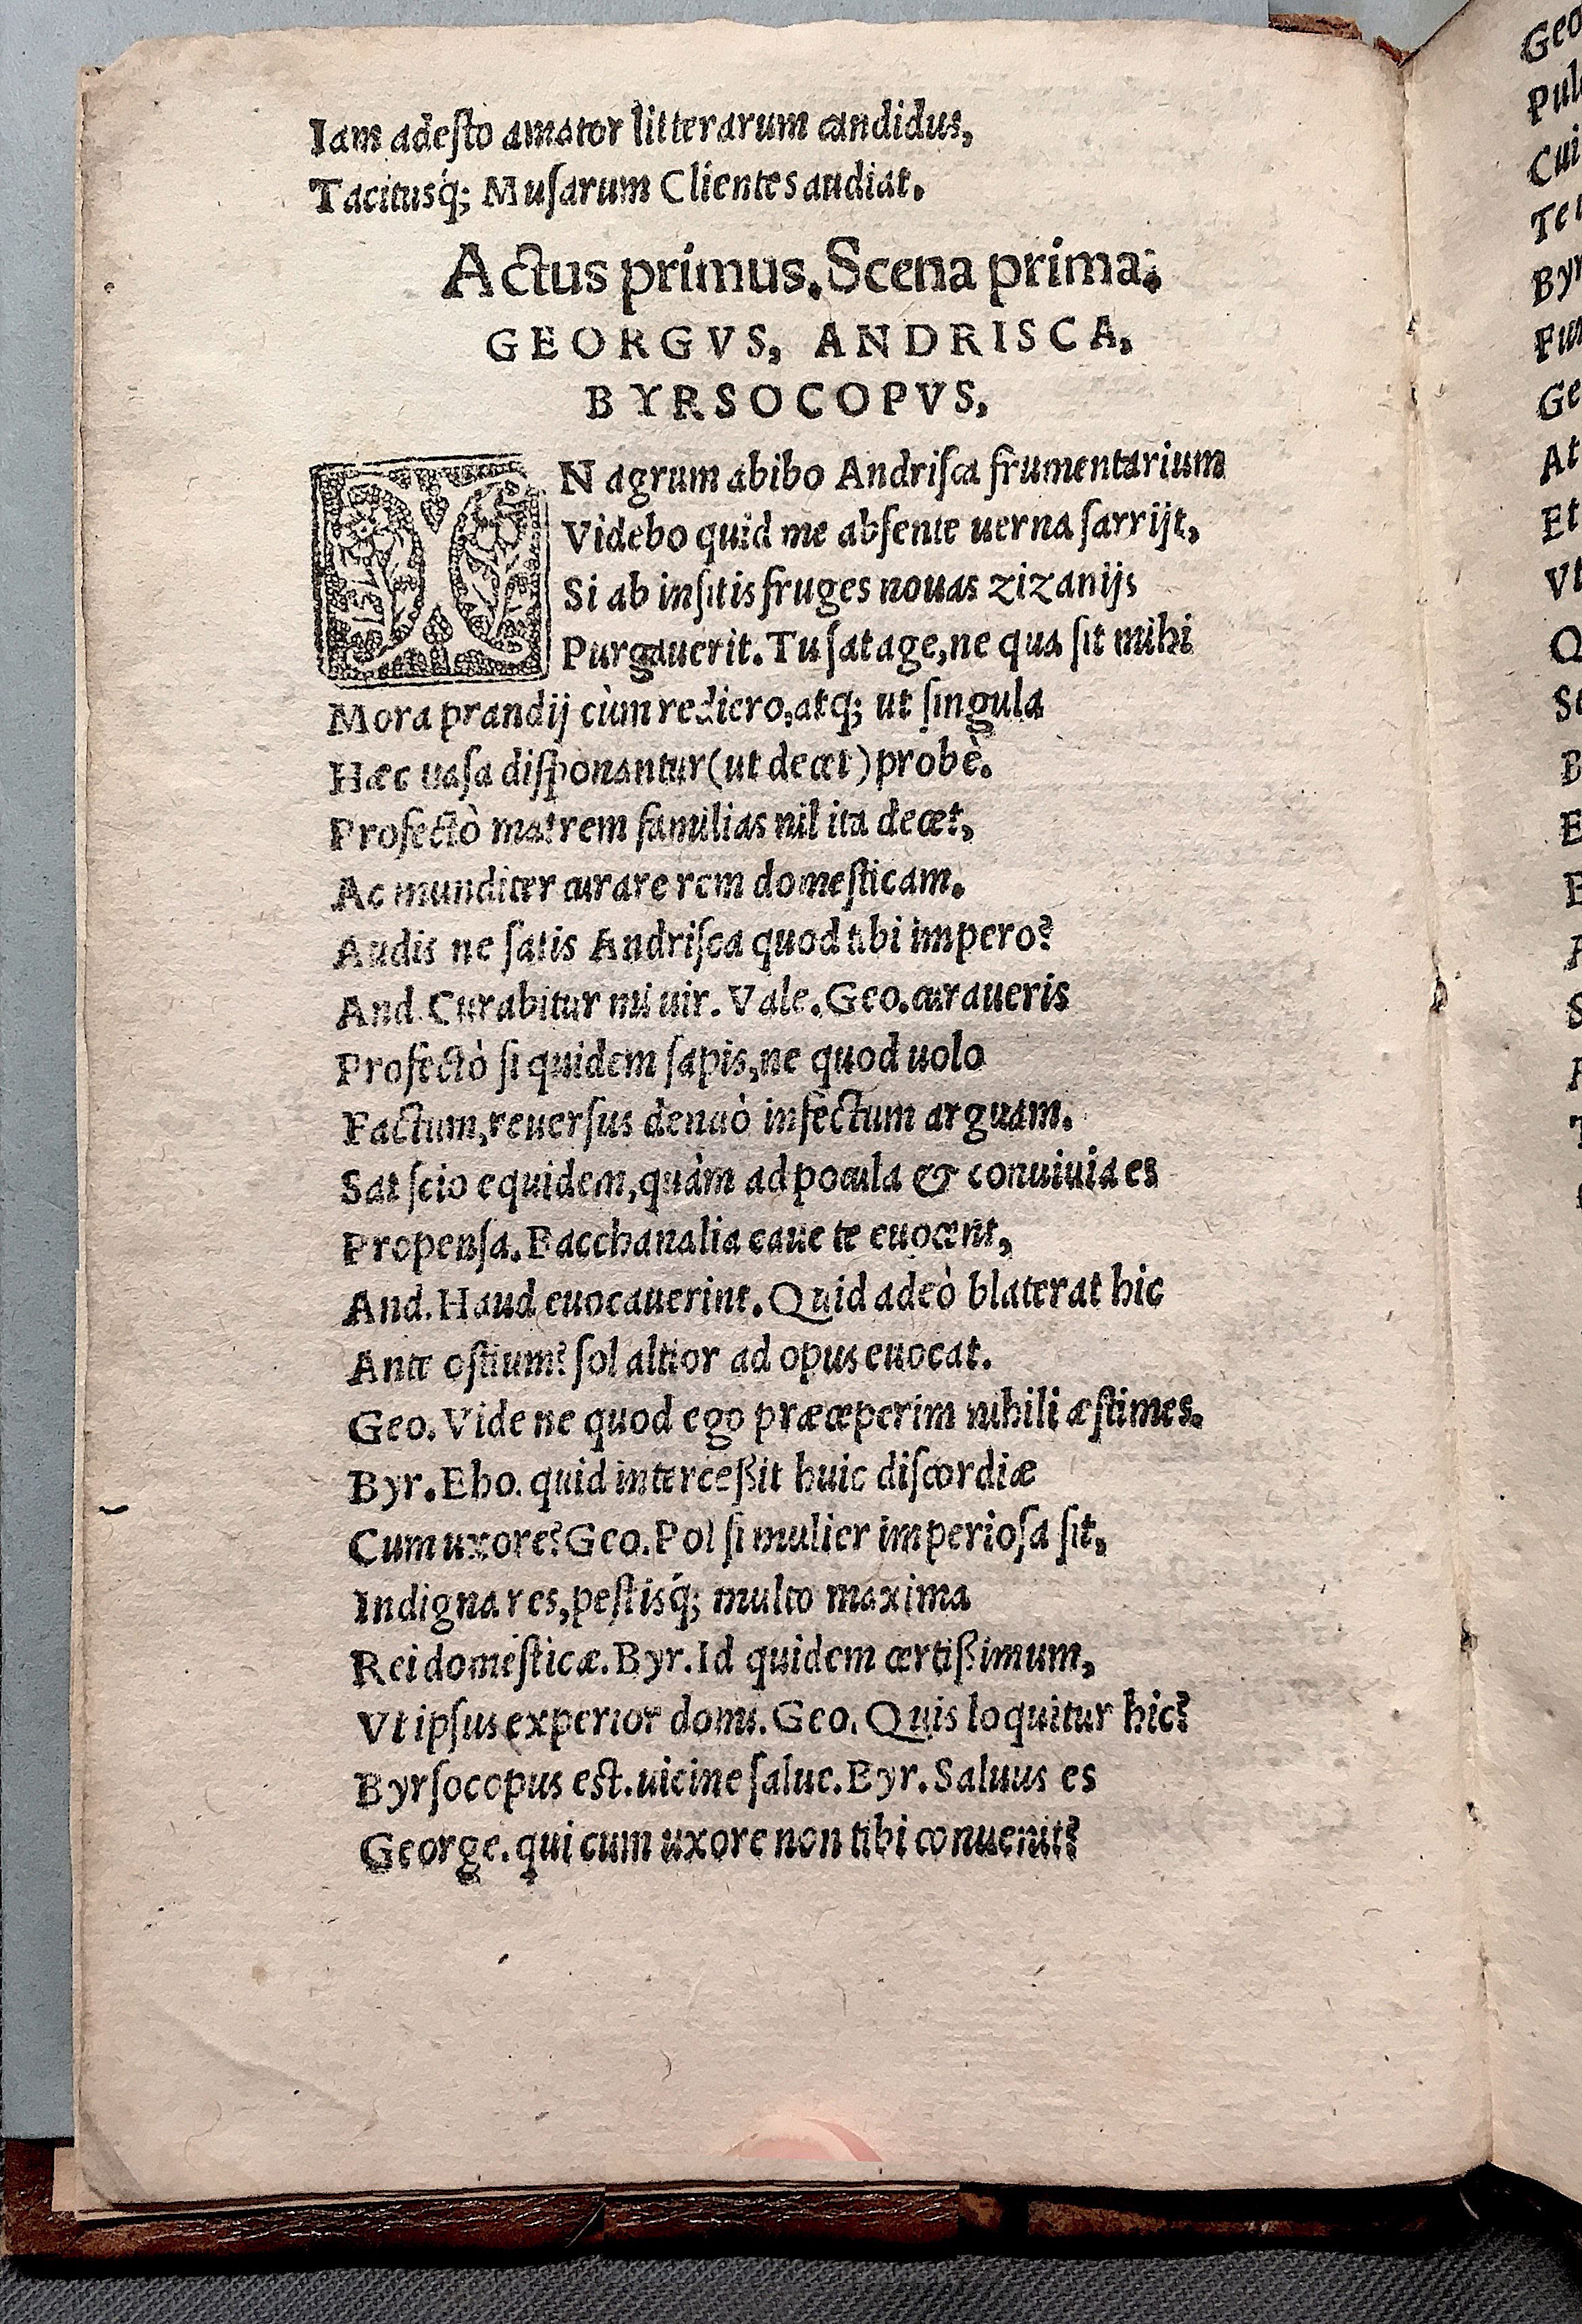 Iam adeſto amator litterarum candidus,
Tacitusq́; Muſarum Clientes audiat.
Actus primus. Scena prima.
GEORGVS, ANDRISCA,
BYRSOCOPVS,
IN agrum abibo Andriſca frumentarium
Videbo quid me abſente uerna ſarrijt,
Si ab inſitis fruges nouas zizanijs
Purgauerit. Tu ſatage, ne qua ſit mihi
Mora prandij cùm rediero, atq; ut ſingula
Hæc uaſa diſponantur (ut decet) probè.
Profectò matrem familias nil ita decet,
Ac munditer curare rem domeſticam.
Audis ne ſatis Andriſca quod tibi impero?
And. Curabitur mi uir. Vale. Geo. curaueris
Profectò ſi quidem ſapis, ne quod uolo
Factum, reuerſus denuò infectum arguam.
Sat ſcio equidem, quàm ad pocula & conuiuia es
Propenſa. Bacchanalia caue te euocent,
And. Haud euocauerint. Quid adeò blaterat hic
Ante oſtium? ſol altior ad opus euocat.
Geo. Vide ne quod ego præceperim nihili æſtimes.
Byr. Eho. quid interceßit huic diſcordiæ
Cum uxore? Geo. Pol ſi mulier imperioſa ſit,
Indigna res, peſtisq́; multo maxima
Rei domeſticæ. Byr. Id quidem certißimum,
Vt ipſus experior domi. Geo. Quis loquitur hic?
Byrſocopus est. uicine ſalue. Byr. Saluus es
George. qui cum uxore non tibi conuenit?
Geo
Pul
Cui
Te
Byr
Fur
Ge
At
Et
Vt
Q
B
E